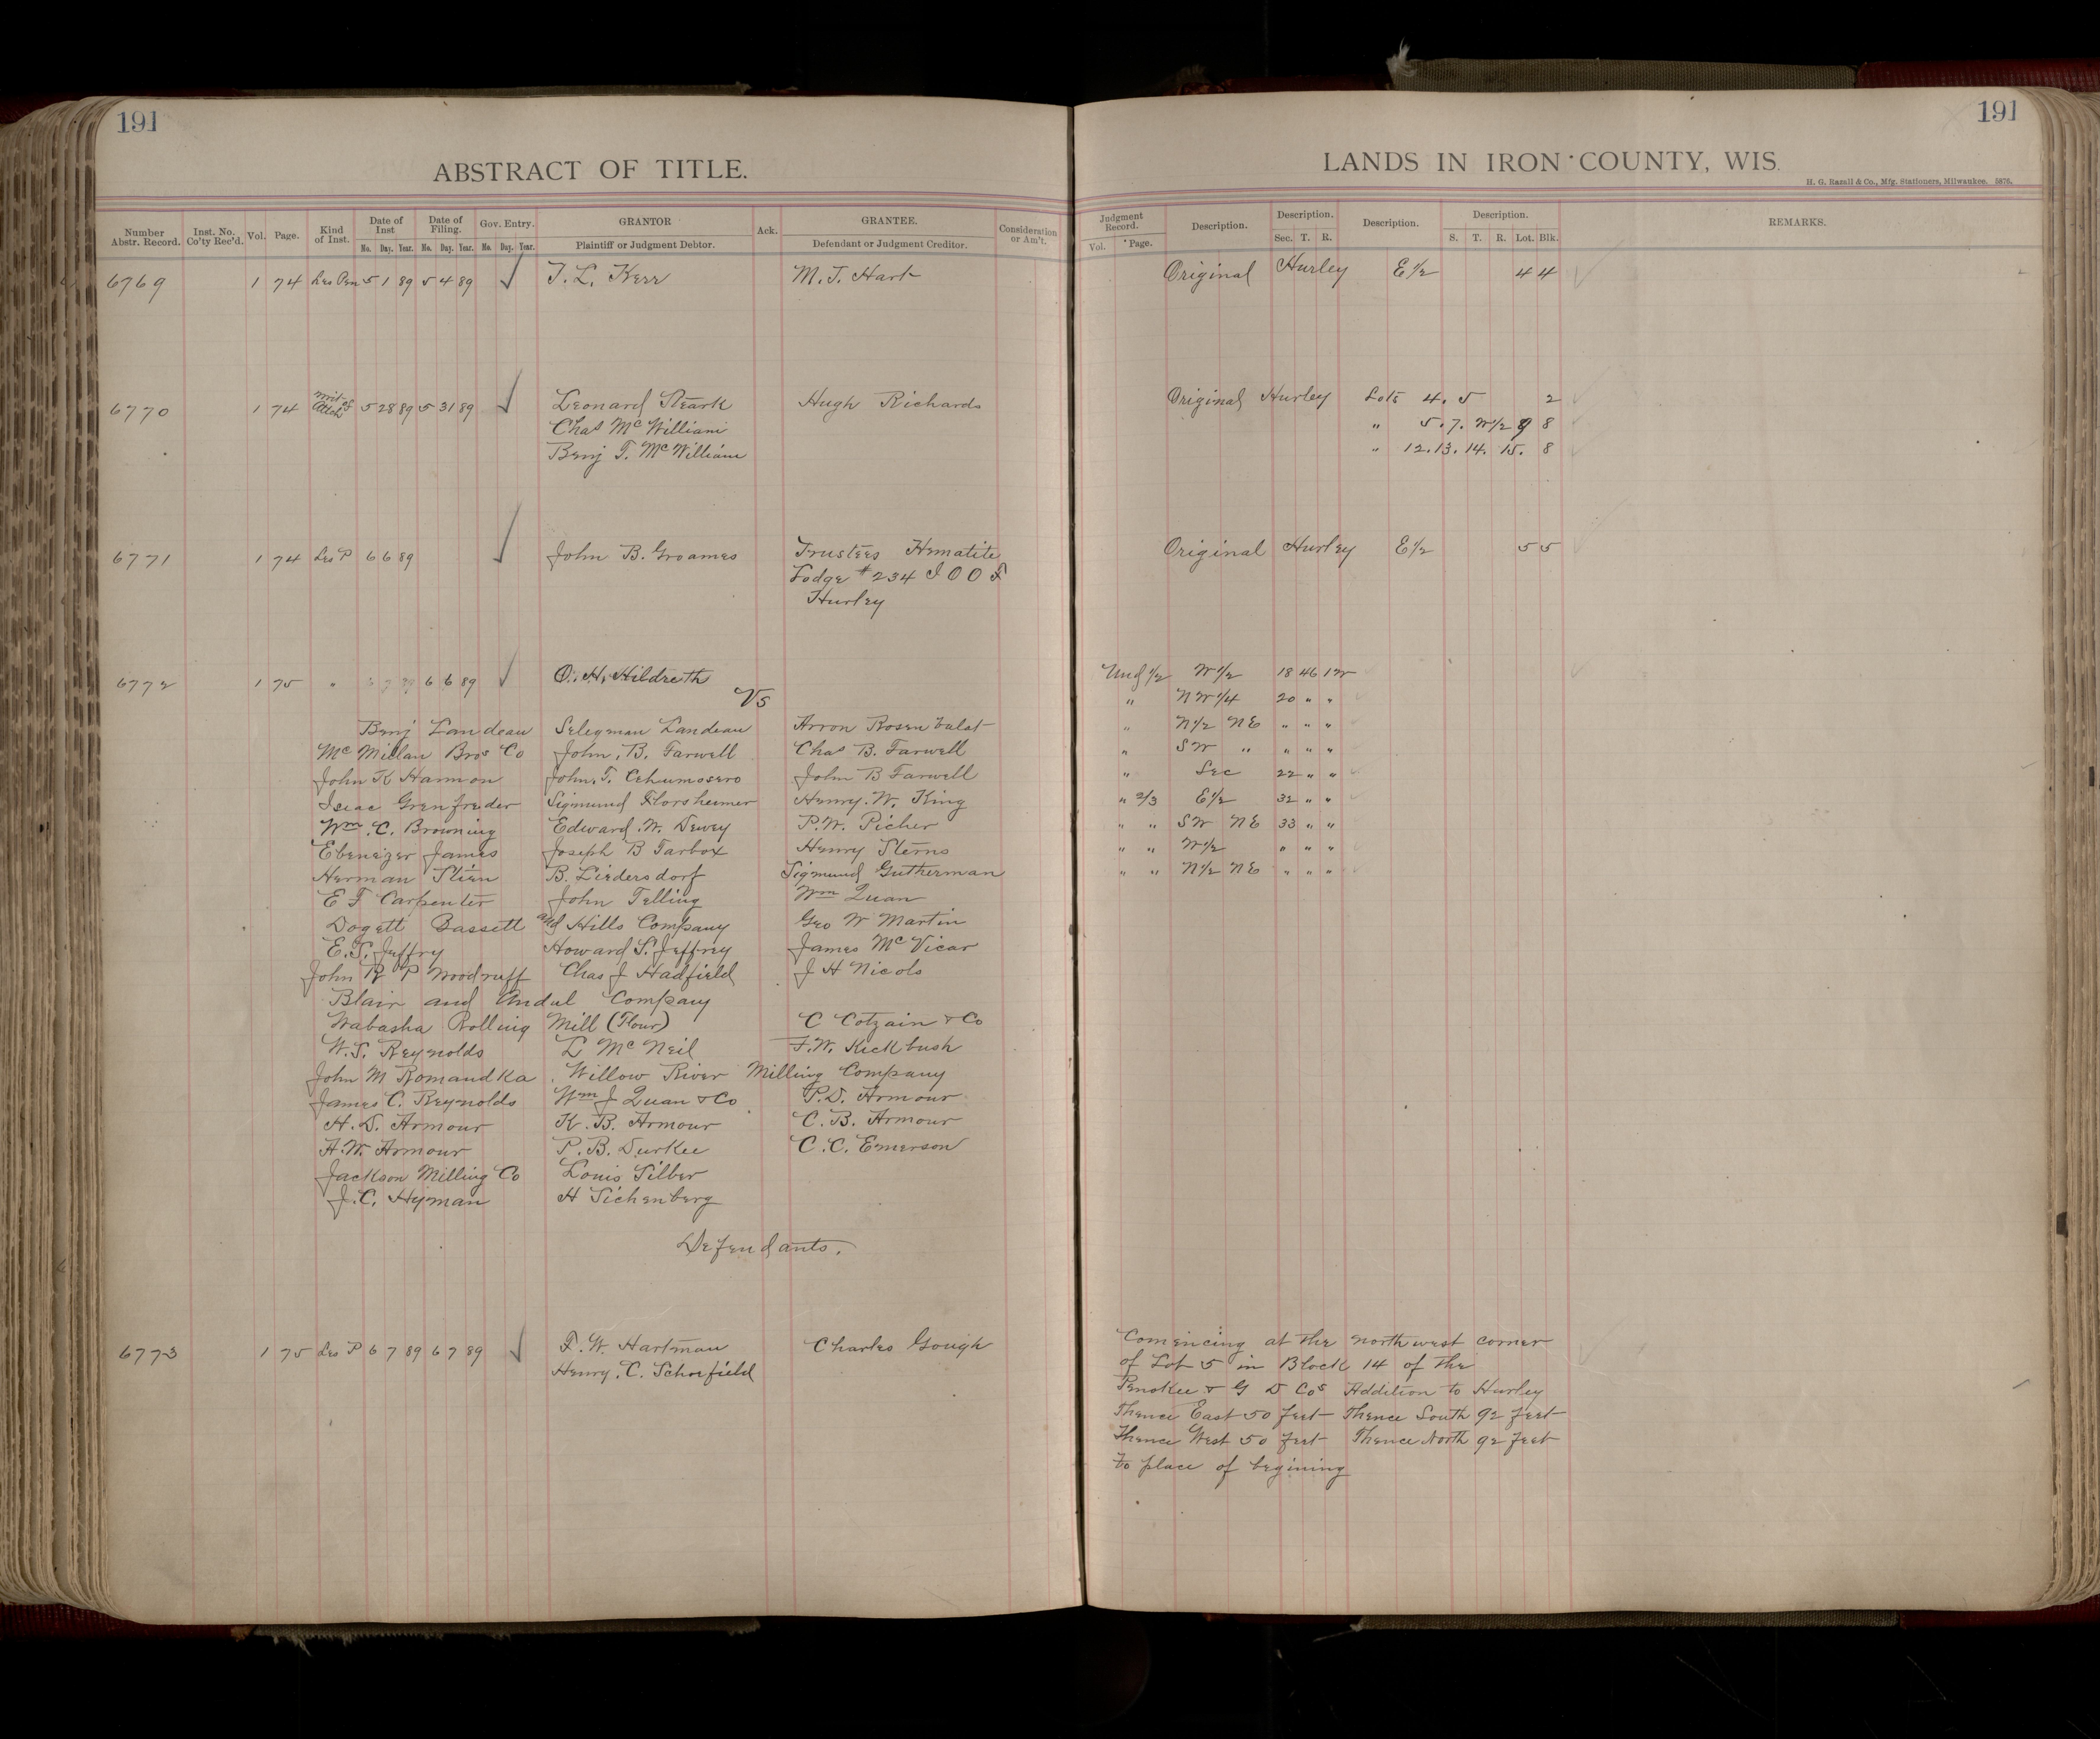 191
ABSTRACT OF TITLE.
Number Abstr. Record. Inst. No. Co'ty Rec'd. Vol. Page. Kind of Inst. Date of Inst Date of Filing. Gov. Entry. GRANTOR Ack. GRANTEE. Consideration or Am't.
Mo. Day. Year. Mo. Day. Year. No. Day. Year. Plaintiff or Judgment Debtor. Defendant or Judgment Creditor.
6769 1 74 Les Pen 5 1 89 5 4 89 T. L. Kerr M. T. Hart
6770 1 74 Writ of Attch 5 28 89 5 31 89 Leonard Stark Hugh Richards
Chas Mc William
Benj T. Mc William
6771 1 74 Les P 6 6 89 John B. Groames Trustees Hematite
Lodge # 234 I O O F
Hurley
6772 1 75 " 6 7 89 6 6 89 O. H. Hildreth
Vs
Benj Landeau Seleyman Landeau Arron Rosenbalat
Mc Millan Bros Co John. B. Farwell Chas B. Farwell
John K Harmon John. T. John B Farwell
Isaac Grenfreder Sigmund Florsheimer Henry. W. King
Wm. C. Browning Edward. W. Dewey P. W. Picher
Ebenezer James Joseph B Tarbox Henry Sterns
Herman Stien B. Liedersdorf Sigmund Gutherman
E F Carpenter John Telling Wm Quan
Dogett Bassett and Hills Company Geo W Martin
E. S. Jeffry Howard S. Jeffrey James Mc Vicar
John R P Woodruff Chas J Hadfield J H Nicols
Blair and Andul Company
Wabasha Rolling Mill (Flour) C Cotzain & Co
W. S. Reynolds L Mc Neil F. W. Kickbush
John M Romandka. Willow River Milling Company
James C. Reynolds Wm J Quan & Co P. D. Armour
H. D. Armour K. B. Armour C. B. Armour
A. W. Armour P. B. Durkee C. C. Emerson
Jackson Milling Co Louis Silber
J. C. Hyman H Sichenberg
Defendants.
6773 1 75 Les P 6 7 89 6 7 89 F. W. Hartman Charles Gough
Henry. C. Schoefield
191
LANDS IN IRON COUNTY, WIS.
H. G. Razall & Co., Mfg. Stationers, Milwaukee. 5876.
Judgment Record. Description. Description. Description. Description. REMARKS.
Vol. Page. Sec. T. R. S. T. R. Lot. Blk.
Original Hurley E 1/2 4 4
Original Hurley Lots 4. 5 2
" 5. 7. W 1/2 9 8
" 12. 13. 14. 15. 8
Original Hurley E 1/2 5 5
Und 1/2 W 1/2 18 46 1 W
" N W 1/4 20 " "
" N 1/2 N E " " "
" S W " " " "
" Sec 22 " "
" 2/3 E 1/2 32 " "
" " S W N E 33 " "
" " W 1/2 " " "
" " N 1/2 N E " " "
Comencing at the northwest corner
of Lot 5 in Block 14 of the
Penokee & G D Cos Addition to Hurley
Thence East 50 feet Thence South 92 feet
Thence West 50 feet Thence North 92 feet
to place of begining